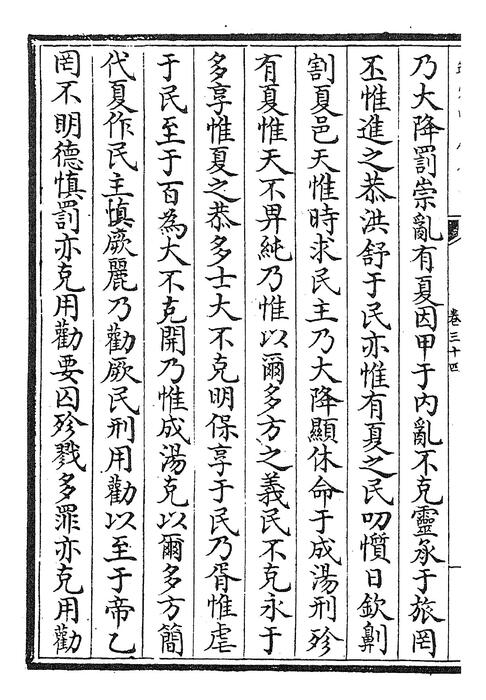 乃大降罰崇亂有夏因甲于內亂不克靈承于旅罔
丕惟進之恭洪舒于民亦惟有夏之民叨懫日欽劓
割夏邑天惟時求民主乃大降顯休命于成湯刑殄
有夏惟天不畀純乃惟以爾多方之義民不克永于
多享惟夏之恭多士大不克明保享于民乃胥惟虐
于民至于百為大不克開乃惟成湯克以爾多方簡
代夏作民主慎厥麗乃勸厥民刑用勸以至于帝乙
罔不明德慎罰亦克用勸要囚殄戮多罪亦克用勸
卷三十四